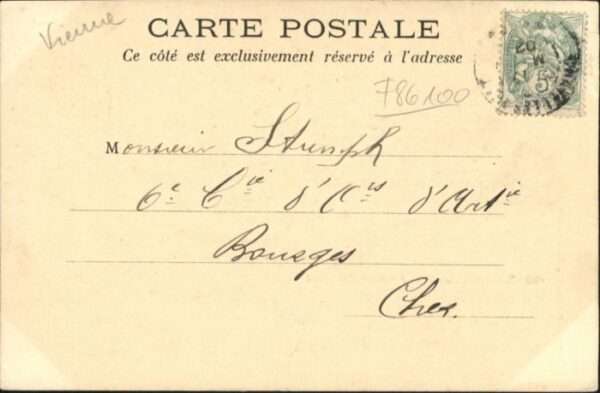 Vienne
CARTE POSTALE
Ce côté est exclusivement réservé à l'adresse
F86100
Monsieur Stumph
6e Cie d'Ors d'Artie
Bourges
Cher.